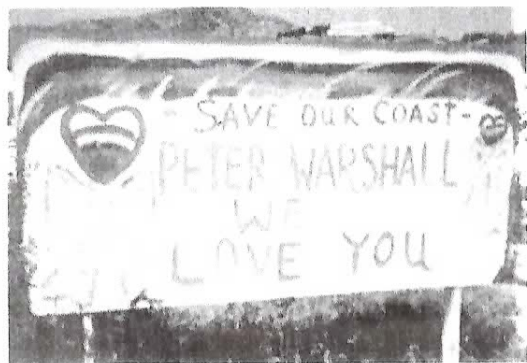 - SAVE OUR COAST-
PETER WARSHALL
WE
LOVE YOU